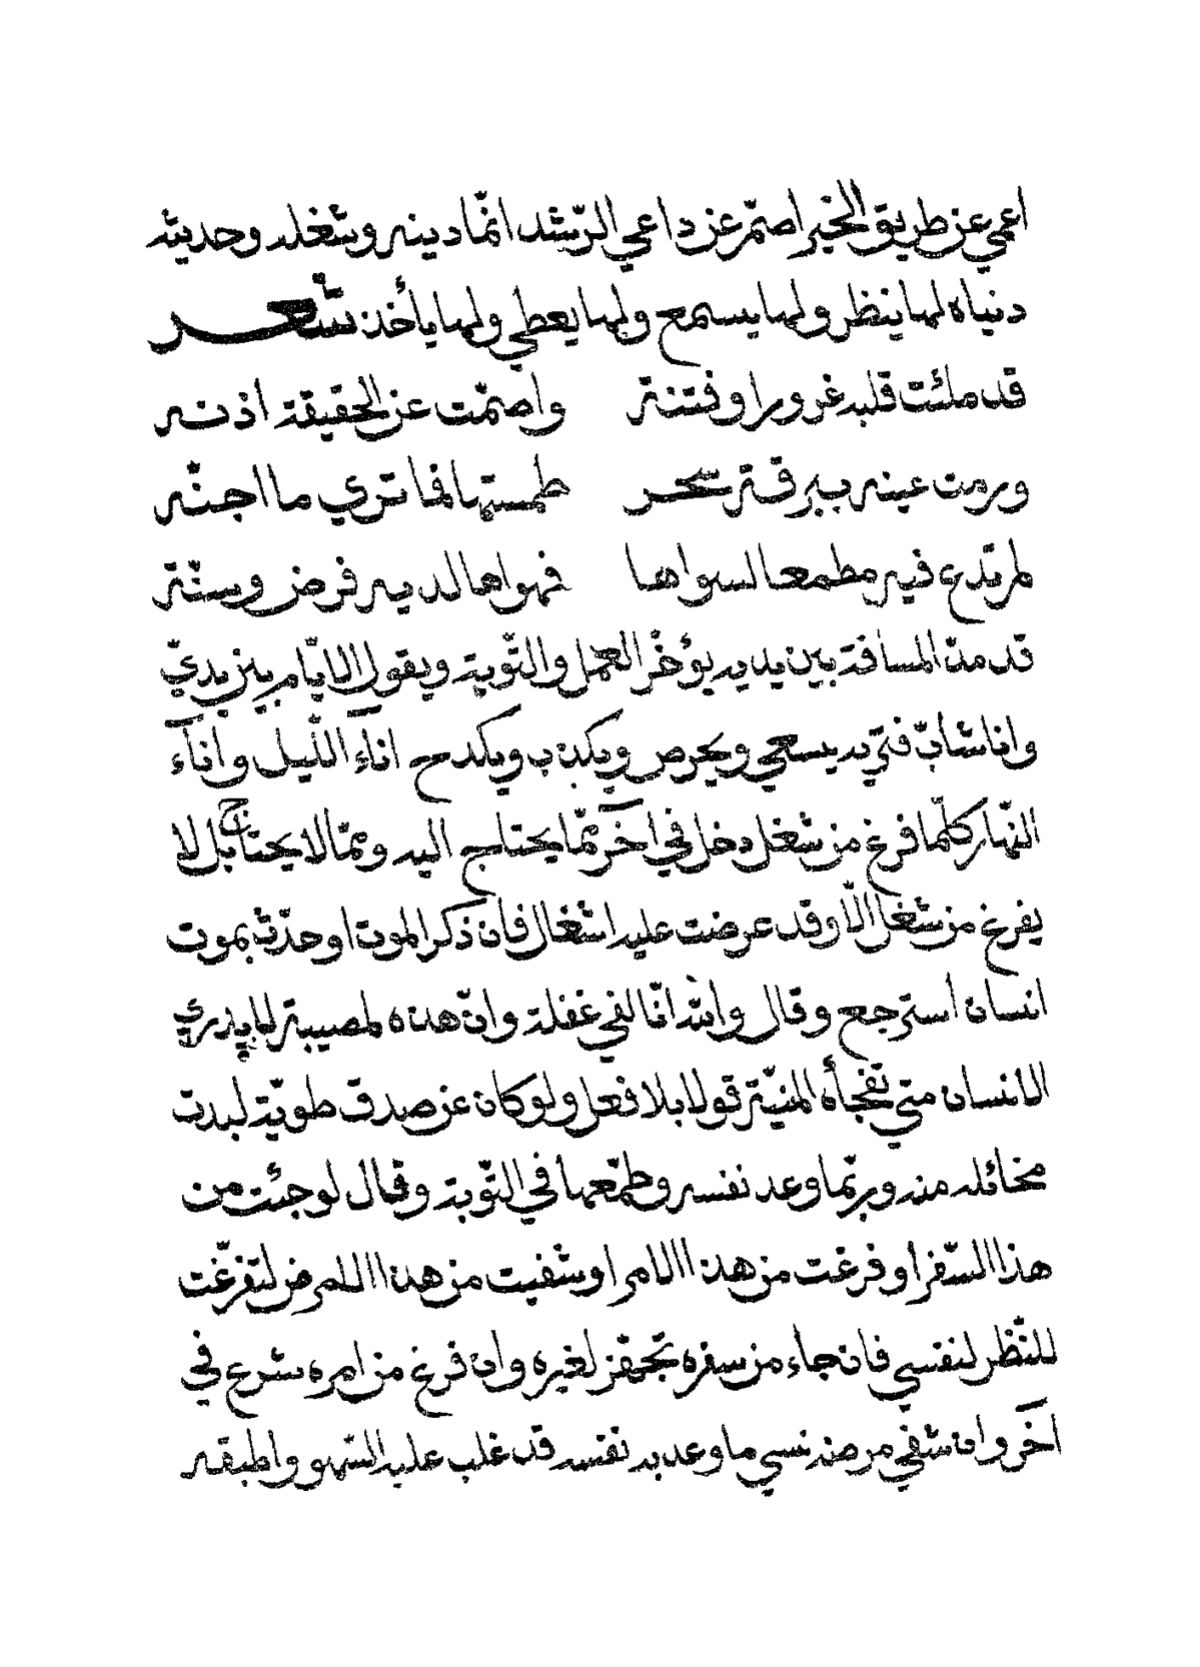 اعمي عن طريق الخير اصمّ عن داعي الرّشد انّما دينه وشغله وحديثه
دنياه لها ينظر ولها يسمع ولها يعطي ولها يأخذ شعر
قد ملئت قلبه غرورا وفتنة واصمّت عن الحقيقة اذنه
ورمت عينه ببرقة سحر طمستها فما ترى ما اجنّه
لم تدع فيه مطمعا لسواها فهواها لديه فرض وسنّة
قد مدّ المسافة بين يديه يؤخّر العمل والتّوبة ويقول الايّام بين يديّ
وانا شابّ فتي يسعي ويحرص ويكذب ويكدح اناء اللّيل وآناء
النّهار كلّما فرغ من شغل دخل في اخر ممّا يحتاج اليه وممّا لا يحتاج بل لا
يفرغ من شغل الّا وقد عرضت عليه اشغال فان ذكر الموت او حدّث بموت
انسان أسترجع وقال والله انّا لفي غفلة وانّ هذه لمصيبة لما يدري
الانسان متي تفجأه المنيّة قولا بلا فعل ولو كان عن صدق طويّة لبدت
مخائله منه وربّما وعد نفسه وطمّعها في التّوبة وقال لو جئت من
هذا السّفر او فرغت من هذا الامر او شفيت من هذا المرض لتفرّغت
للنّظر لنفسي فان جاء من سفره تجهّز لغيره وان فرغ من امره شرع في
آخر وان شفي من مرضه نسي ما وعد به نفسه قد غلب عليه السّهو واطبقه